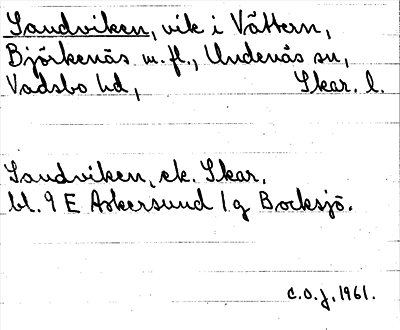 Sandviken, vik i Vättern,
Björkenäs m.fl., Undenäs sn,
Vadsbo hd, Skar. l.
Sandviken, ek. Skar.
bl. 9 E Askersund 1 g Bocksjö.
C.O.J. 1961.